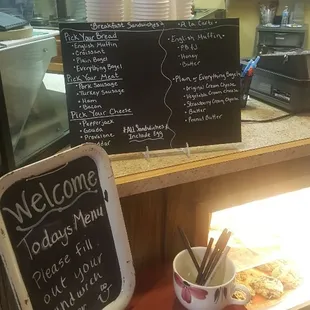 Breakfast Sandwiches
Pick Your Bread
English Muffin
Croissant
Plain Bagel
Everything Bagel
Pick Your Meat
Pork Sausage
Turkey Sausage
Ham
Bacon
Pick Your Cheese
Pepperjack
Gouda
Provolone
Cheddar
All Sandwiches
Include Egg
A La Carte
English Muffin -
PB & J
Honey
Butter
Plain or Everything Bagel
Original Cream Cheese
Vegetable Cream Cheese
Strawberry Cream Cheese
Butter
Peanut Butter
Welcome
Todays Menu
Please fill
out your
Sandwich